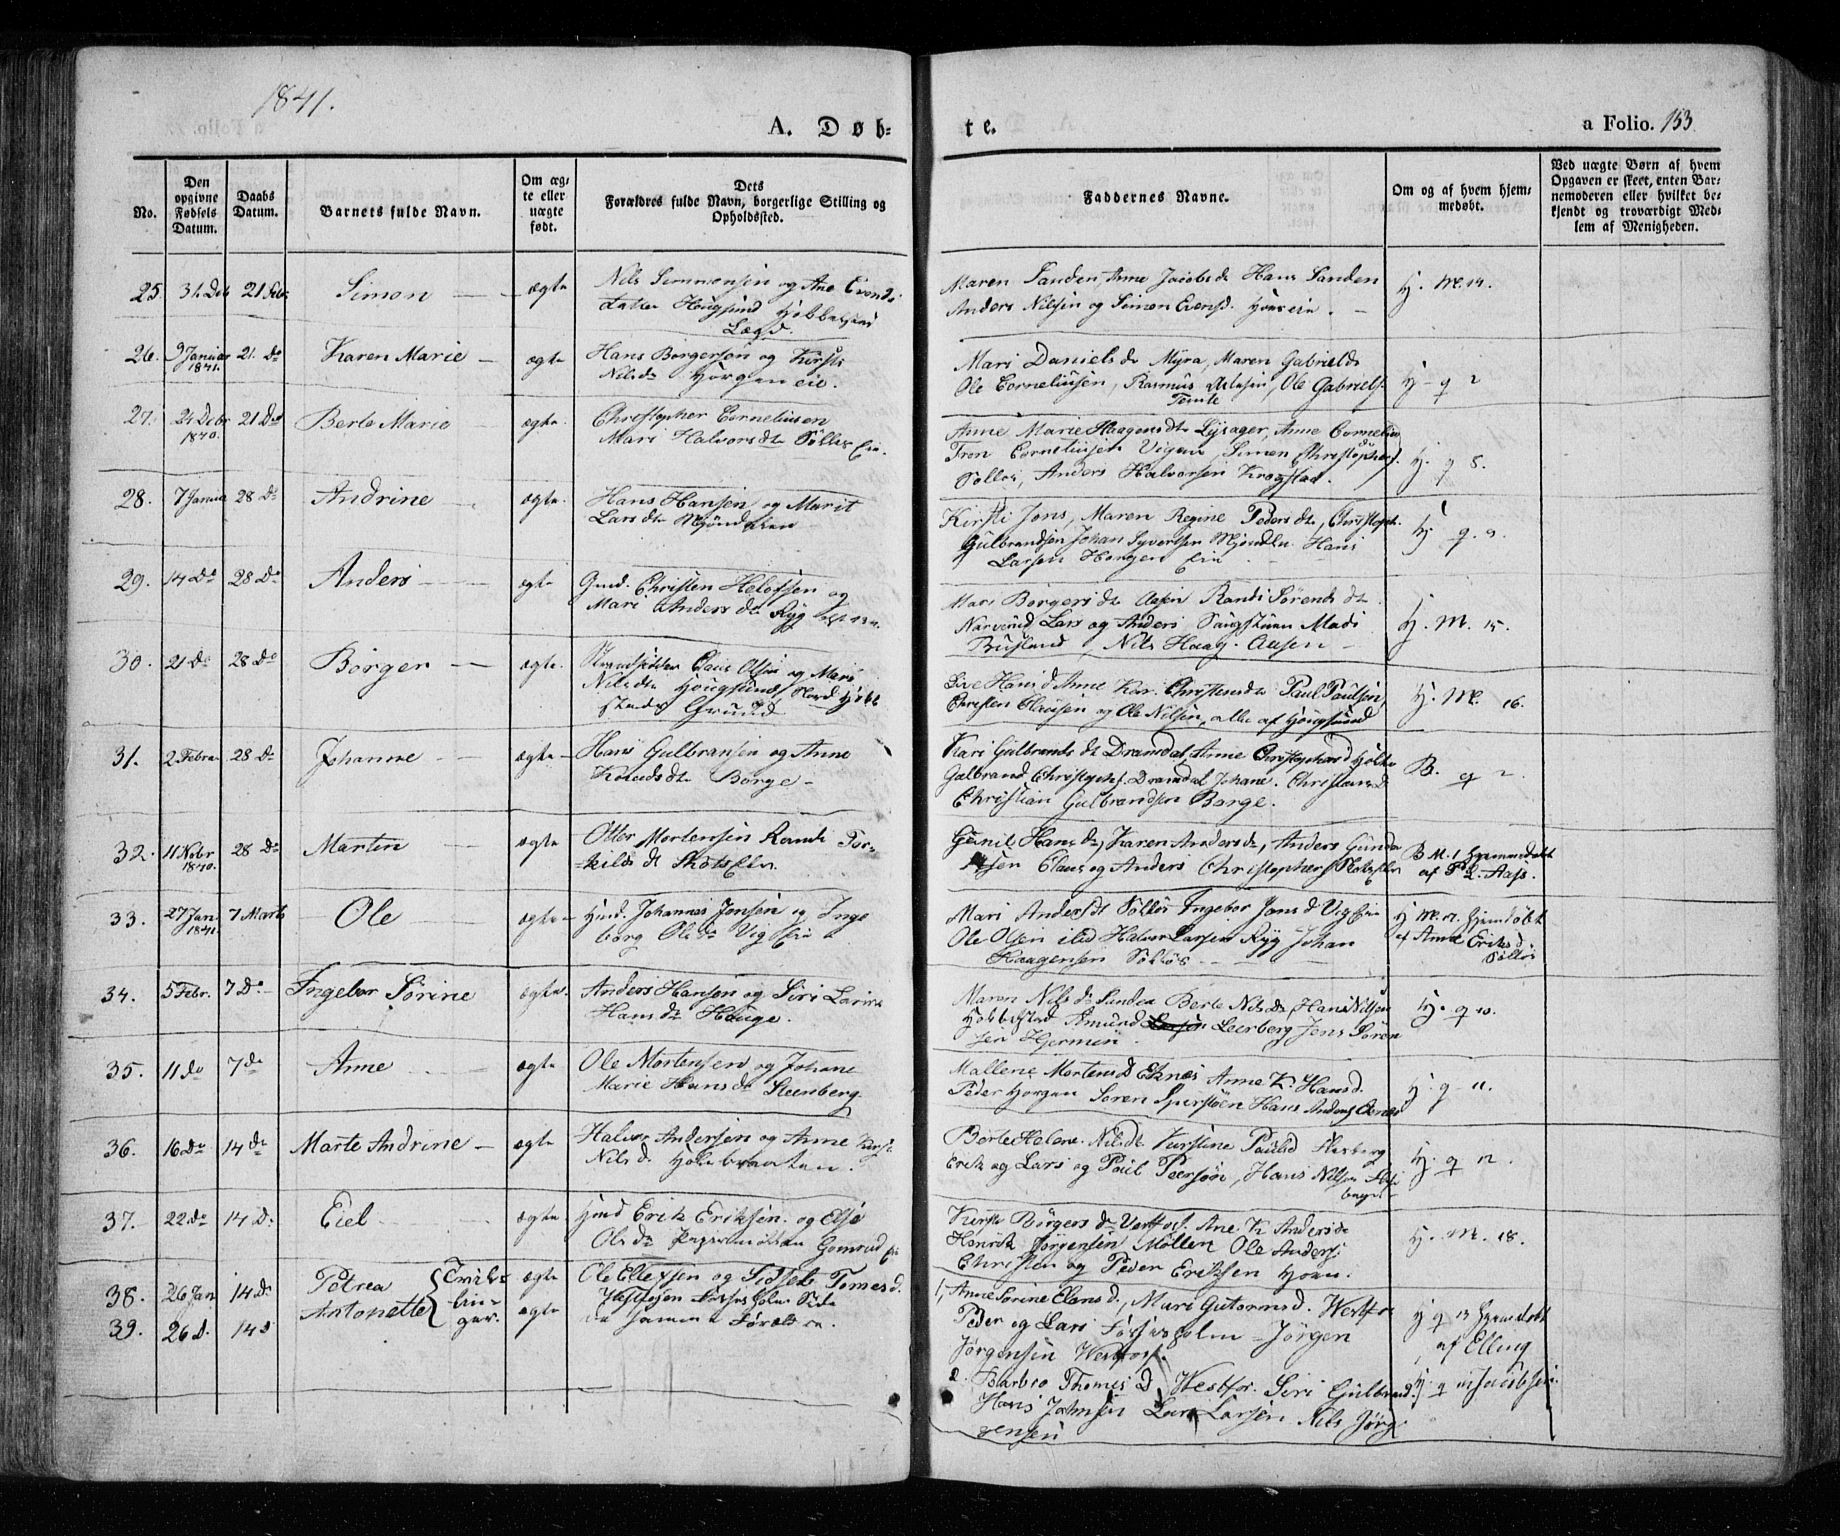 1841.
A. Døb-
te.
a Folio. 153
No.
Den opgivne Fødsels Datum.
Daabs Datum.
Barnets fulde Navn.
Om æg-
te eller
uægte
født.
Dets
Forældres fulde Navn, borgerlige Stilling og
Opholdssted.
Faddernes Navne.
Om og af hvem hjem-
medøbt.
Ved uægte Børn af hvem
Opgaven er skeet, enten Bar-
nemoderen eller hvilket be-
kjendt og troværdigt Med-
lem af Menigheden.
25. 31 Deb 21 Febr Simon ægte
Nils Simmonsen og Ane Evends
datter Hougsund
Lægd.
Maren Sanden, Anne Jacobsdr Hans Sanden
Anders Nilsen og Simon Evensd.
H. M. 14.
26. 9 Januar 1841. 21. Do Karen Marie ægte
Hans Borgersen og Kirsti
Nilsdr Horgen eie.
Mari Daniels dr Myra, Maren Gabrielsd
Ole Corneliusen, Rasmus Nilsen, Ole Gabriels.
Temte
H - q 2
27. 24 Debr 1840. 21 Do Berte Marie ægte.
Christopher Corneliusen
Mari Halvors dtr Solles Eie.
Anne Marie Haagens dtr, Anne Cornelius
Tron Corneliusen, Simen Christophers.
Anders Halvorsen Krogstad.
H. q 8.
28. 7 Januar 28 Do Andrine ægte.
Hans Hansen og Marit
Lars dtr Mjøndalen
Kirsti Jons, Maren Regine Peders dtr, Christoph.
Gulbrandsen Johan Syvertsen Mjøndln Hans
Larsen Horgen Eie
H q. 9.
29. 14 Do 28 Do Anders ægte
Gmd. Christen Helofsen og
Mari Anders dr Ryg
Mari Borgers dt Aasen Randi Sørens dt
Narverud Lars og Anders Mads
Nils Haag. Aasen
H. M. 15.
30. 21 Do 28 Do Børger ægte.
Strandsidder Claus Olsen og Mari
Nilsdtr Hougsund Nord
Grund
Live Hansd Anne Kar. Christensdtr Paul Paulsen,
Christen Clausen og Ole Nilsen, alle af Hougsund
H. M. 16.
31. 2 Febra 28 Do Johanne ægte
Hans Gulbransen og Anne
Knuds dt Borge
Kari Gulbrands dt Dramdal, Anne Christophersd
Gulbrand Christoph. Dramdal Johane. Christians D
Christian Gulbrandsen Borge.
B. q 2.
32. 11 Nobr 1840. 28 Do Martin ægte
Otter Mortensen Randi Tor-
kilds dt
Gunil Hans dr, Karen Anders dr, Anders Gunder
sen Claus og Anders Christophers
B M. 1 Hjemmedøbt
af P L. Aass.
33. 27 Jan. 1841. 7 Marts Ole ægte
Hmd. Johannes Jonsen og Inge
borg Ols dr Vig Eie
Mari Andersdt Solløs Ingebor Jans d Vig Eie
Ole Olsen Halvor Larsen Ryg Johan
Haagensen Solløs
H M. 17. Hjemdøbt
af Anne Eriksd.
Solløs
34. 5 Febr. 7 Do Ingebor Sørine ægte.
Anders Hansen og Siri Larine
Hans dr Hauge.
Maren Nils dr Sunden Berte Nils dr, Hans Nilsen
Hobbelstad Amund Leerberg Jens Søren
sen Hjermin
H. q 10.
35. 11 Do 7 do Anne ægte
Ole Mortensen og Johane
Marie Hans dr Steenberg
Mallene Mortens D Eknes Anne K. Hansd.
Peder Horgen Soren Hans Anders
H. q - 11.
36. 16 Do 14 do Marte Andrine ægte
Halvor Andersen og Anne
Nils d.
Berte Helene. Nils dt Kirstine Pauls d
Erik og Lars og Paul Peersøn, Hans Nilsen
H. q 12.
37. 22 Do 14 D. Eiel ægte
Hmd Erik Eriksen og Else
Ols dr Papermøllen Gomrud Eie
Kirsti Børgers dr Vestfos. Ane K Anders dr
Henrik Jørgensen Møllen Ole Anders
Christen og Peder Eriksen Horn.
H. M. 18.
38. 26 Jan 14 Do Petrea ægte
39. 26 D. 14 D Antonette ægte
Tvil-
lin-
ger.
Ole Ellefsen og Sidsel Tomes d.
Vestfosen Fossesholm Side
De samme Forældre.
1, Anne Sorine Elans d., Mari Gutorms d. Westfos
Peder og Lars Fossesholm - Jörgen
Jørgensen Westfos.
2. Barbro Thomes D Westfos. Siri Gulbrand.
Hans Johnsen Lars Larsen Nils Jørg
ensen
H q 13 Hjemdøbt
af Elling
H q 14 Jacobsen.